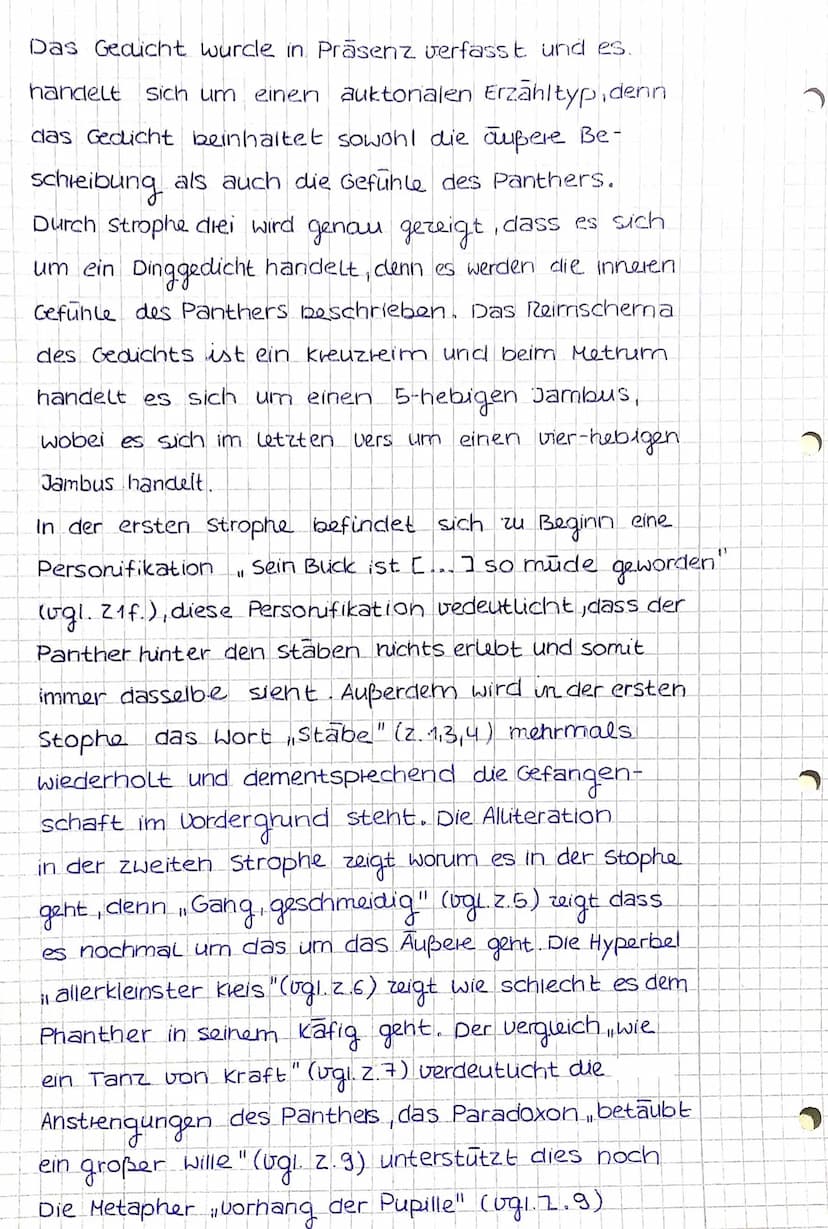 Das Gedicht wurde in Präsenz verfasst und es
handelt sich um einen auktonalen Erzähltyp, denn
das Gedicht beinhaltet sowohl die äußere Be-
schreibung als auch die Gefühle des Panthers.
Durch Strophe drei wird genau gezeigt, dass es sich
um ein Dinggedicht handelt, denn es werden die inneren
Gefühle des Panthers beschrieben. Das Reimschema
des Gedichts ist ein Kreuzreim und beim Metrum
handelt es sich um einen 5-hebigen Jambus,
wobei es sich im letzten Vers um einen vier-hebigen
Jambus handelt.
In der ersten Strophe befindet sich zu Beginn eine
Personifikation „Sein Blick ist [...] so müde geworden"
(vgl. Z1f.), diese Personifikation vedeutlicht, dass der
Panther hinter den Stäben nichts erlebt und somit
immer dasselbe sieht. Außerdem wird in der ersten
Stophe das Wort „Stäbe" (Z. 1,3,4) mehrmals
wiederholt und dementsprechend die Gefangen-
schaft im Vordergrund steht. Die Alliteration
in der zweiten Strophe zeigt worum es in der Stophe
geht, denn „Gang, geschmeidig" (vgl. Z.5) zeigt dass
es nochmal um das um das Äußere geht. Die Hyperbel
„allerkleinster Kreis" (vgl. Z.6) zeigt wie schlecht es dem
Phanther in seinem Käfig geht. Der Vergleich „wie
ein Tanz von Kraft" (vgl. Z.7) verdeutlicht die
Anstrengungen des Panthers, das Paradoxon „betäubt
ein großer Wille" (vgl. Z.9) unterstützt dies noch
Die Metapher „Vorhang der Pupille" (vgl. Z.9)